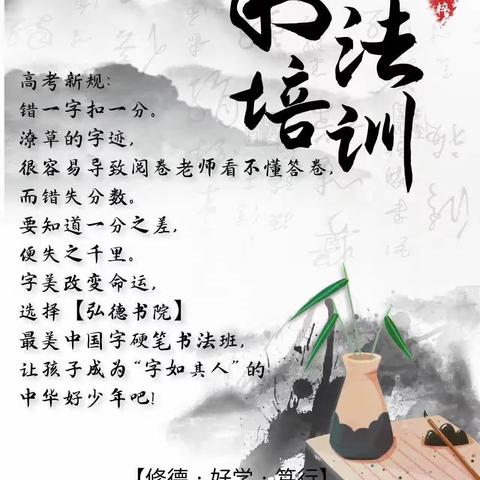 书法
培训
高考新规:
错一字扣一分。
潦草的字迹,
很容易导致阅卷老师看不懂答卷,
而错失分数。
要知道一分之差,
便失之千里。
字美改变命运,
选择【弘德书院】
最美中国字硬笔书法班,
让孩子成为“字如其人”的
中华好少年吧!
【修德·好学·笃行】